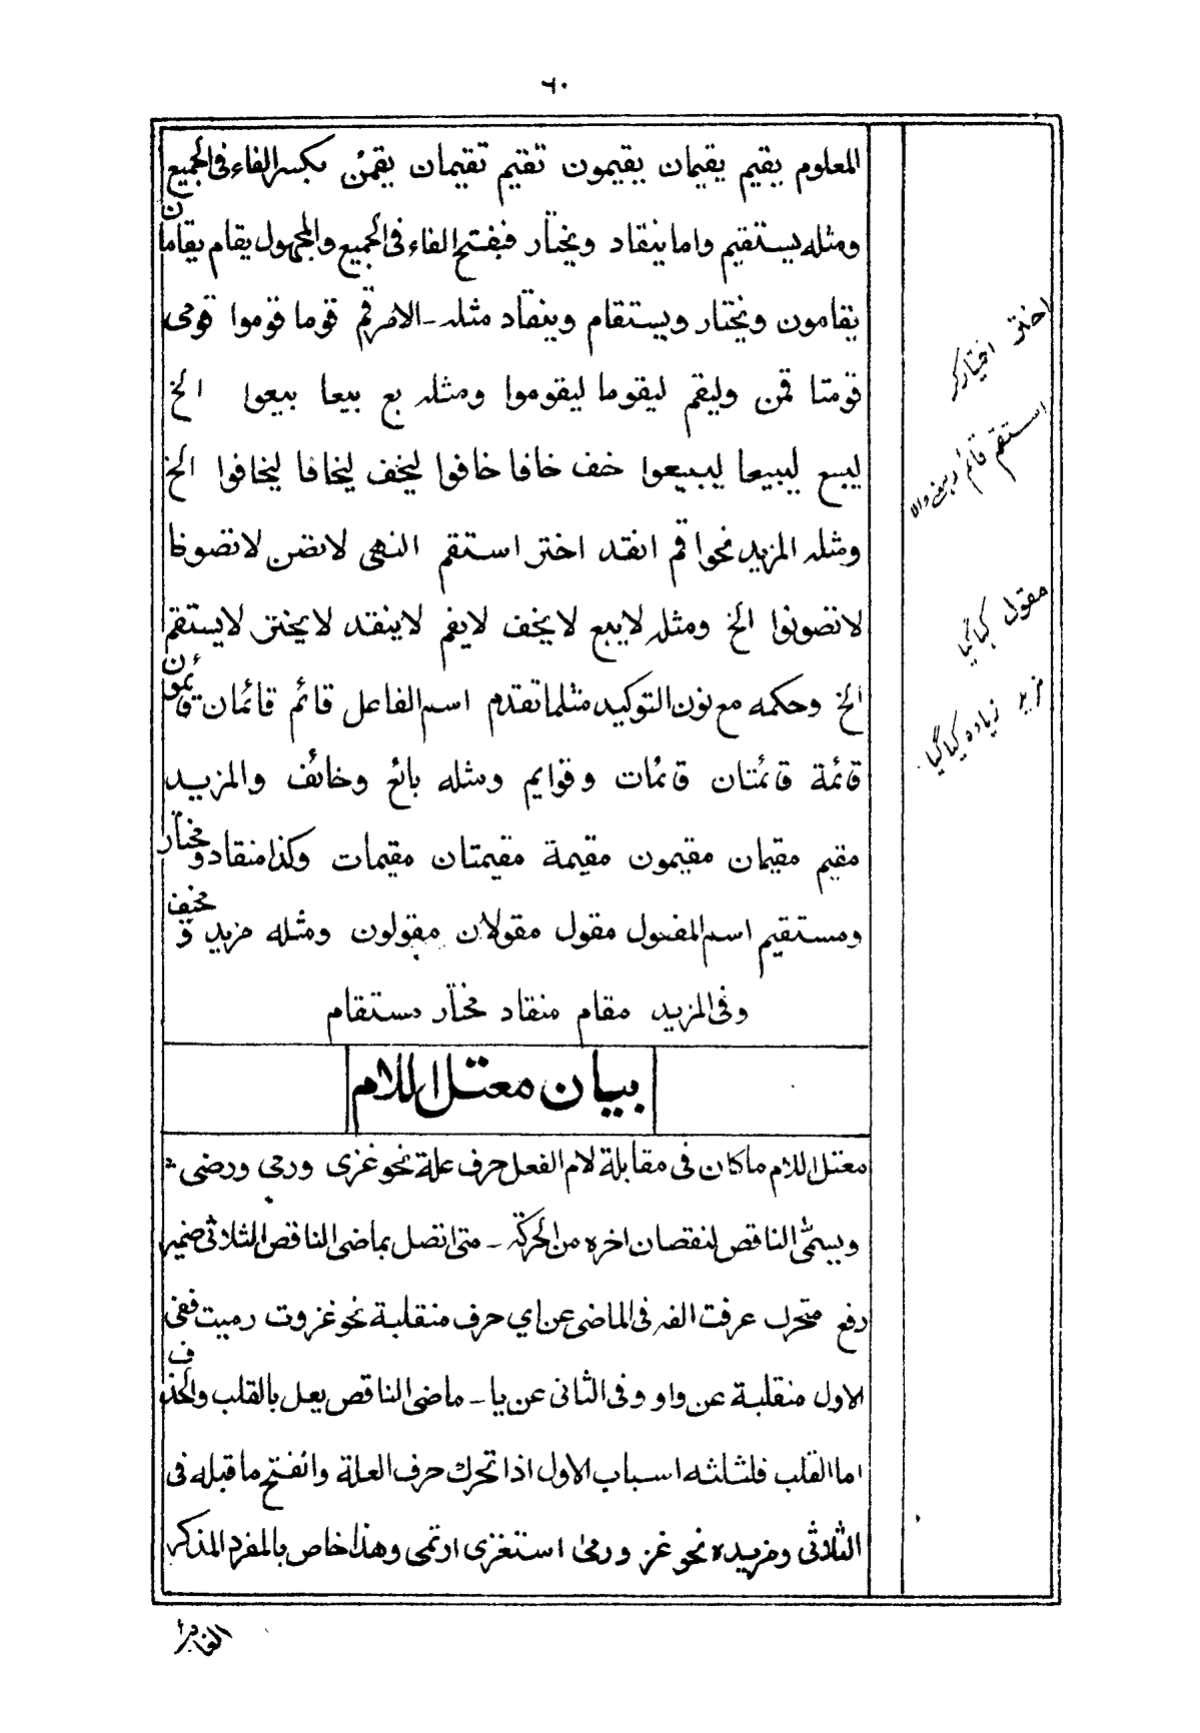 ٦٠
المعلوم يقيم يقيمان يقيمون تقيم تقيمان يقمن بكسر الفاء فى الجميع
ومثله يستقيم واما ينقاد ويختار فبفتح الفاء فى الجميع والمجهول يقام يقامان
يقامون ويختار ويستقام وينقاد مثله ـ الامر قم قوما قوموا قومى
قومتا قمن وليقم ليقوما ليقوموا ومثله بع بيعا بيعوا الخ
ليبع ليبيعا ليبيعوا خف خافا خافوا ليخف ليخافا ليخافوا الخ
ومثله المزيد نحو اقم انقد اختر استقم النهى لا تصن لا تصونا
لا تصونوا الخ ومثله لا يبع لا يخف لا يقم لا ينقد لا يختر لا يستقم
الخ وحكمه مع نون التوكيد مثلما تقدم اسم الفاعل قائم قائمان قائمون
قائمة قائمتان قائمات وقوايم ومثله بائع وخائف والمزيد
مقيم مقيمان مقيمون مقيمة مقيمتان مقيمات وكذا منقاد ومختار
ومستقيم اسم المفعول مقول مقولان مقولون ومثله مزيد و مخيف
وفى المزيد مقام منقاد مختار مستقام
بيان معتل اللام
معتل اللام ما كان فى مقابلة لام الفعل حرف علة نحو غزى ورمى ورضى
ويسمّى الناقص لنقصان اخره من الحركة ـ متى اتصل بماضى الناقص الثلاثى ضمير
رفع متحرك عرفت الفه فى الماضى عن اي حرف منقلبة نحو غزوت رميت ففى
الاول منقلبة عن واو وفى الثانى عن يا ـ ماضى الناقص يعل بالقلب والحذف
اما القلب فلثلثه اسباب الاول اذا تحرك حرف العلة وانفتح ما قبله فى
الثلاثى ومزيده نحو غز ورمى استغزى ارتمى وهذا خاص بالمفرد المذكر
اختر اختیار کر
استقم قائم رہنے والا
مقول کہا گیا
مزید زیادہ کیا گیا